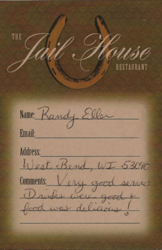 THE
Jail House
RESTAURANT
Name: Randy Eller
Email:
Address:
West Bend, WI 53090
Comments: Very good serv
Drinks were good &
food was delicious!